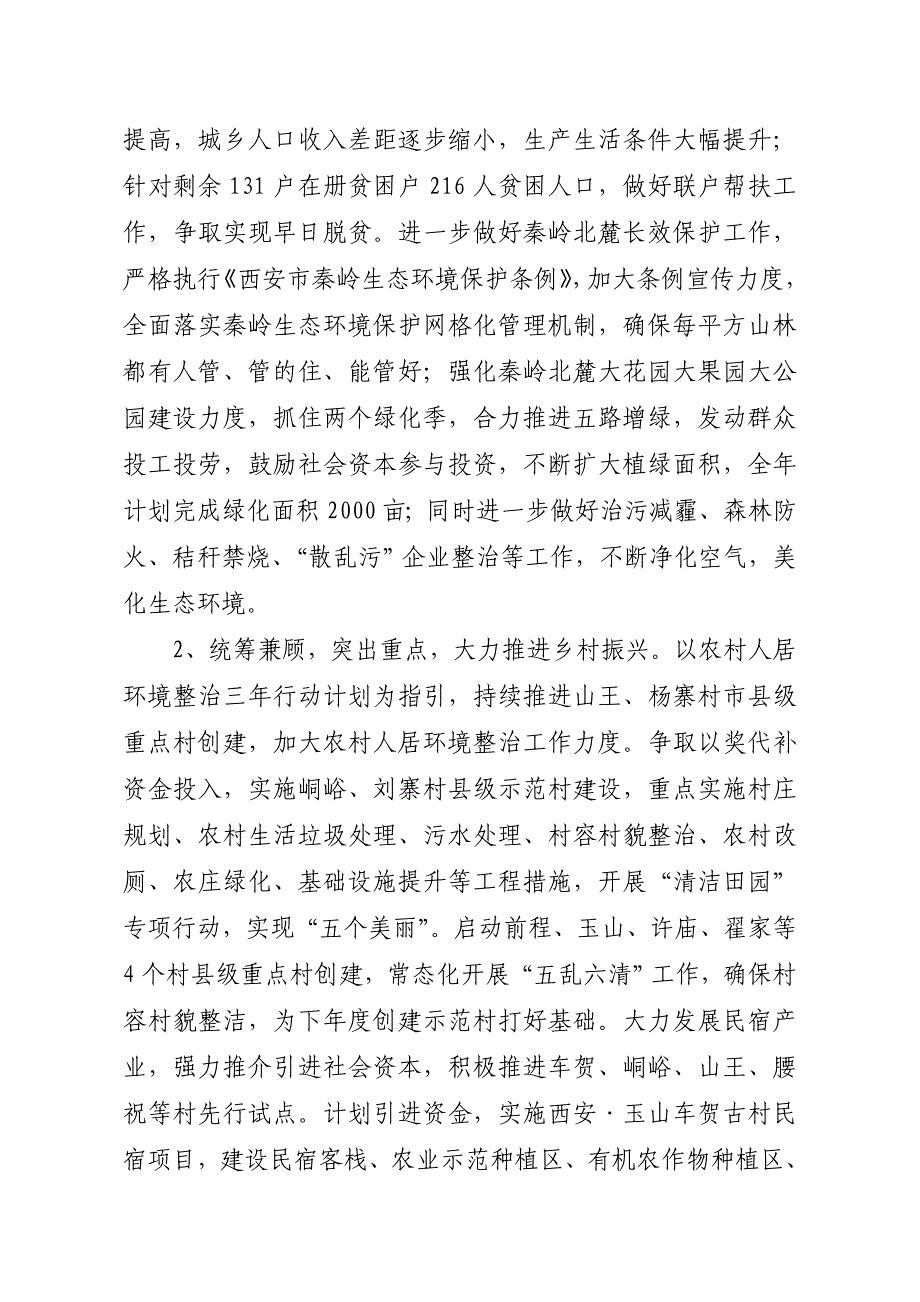 提高，城乡人口收入差距逐步缩小，生产生活条件大幅提升；
针对剩余 131 户在册贫困户 216 人贫困人口，做好联户帮扶工
作，争取实现早日脱贫。进一步做好秦岭北麓长效保护工作，
严格执行《西安市秦岭生态环境保护条例》，加大条例宣传力度，
全面落实秦岭生态环境保护网格化管理机制，确保每平方山林
都有人管、管的住、能管好；强化秦岭北麓大花园大果园大公
园建设力度，抓住两个绿化季，合力推进五路增绿，发动群众
投工投劳，鼓励社会资本参与投资，不断扩大植绿面积，全年
计划完成绿化面积 2000 亩；同时进一步做好治污减霾、森林防
火、秸秆禁烧、“散乱污”企业整治等工作，不断净化空气，美
化生态环境。
2、统筹兼顾，突出重点，大力推进乡村振兴。以农村人居
环境整治三年行动计划为指引，持续推进山王、杨寨村市县级
重点村创建，加大农村人居环境整治工作力度。争取以奖代补
资金投入，实施峒峪、刘寨村县级示范村建设，重点实施村庄
规划、农村生活垃圾处理、污水处理、村容村貌整治、农村改
厕、农庄绿化、基础设施提升等工程措施，开展“清洁田园”
专项行动，实现“五个美丽”。启动前程、玉山、许庙、翟家等
4 个村县级重点村创建，常态化开展“五乱六清”工作，确保村
容村貌整洁，为下年度创建示范村打好基础。大力发展民宿产
业，强力推介引进社会资本，积极推进车贺、峒峪、山王、腰
祝等村先行试点。计划引进资金，实施西安·玉山车贺古村民
宿项目，建设民宿客栈、农业示范种植区、有机农作物种植区、